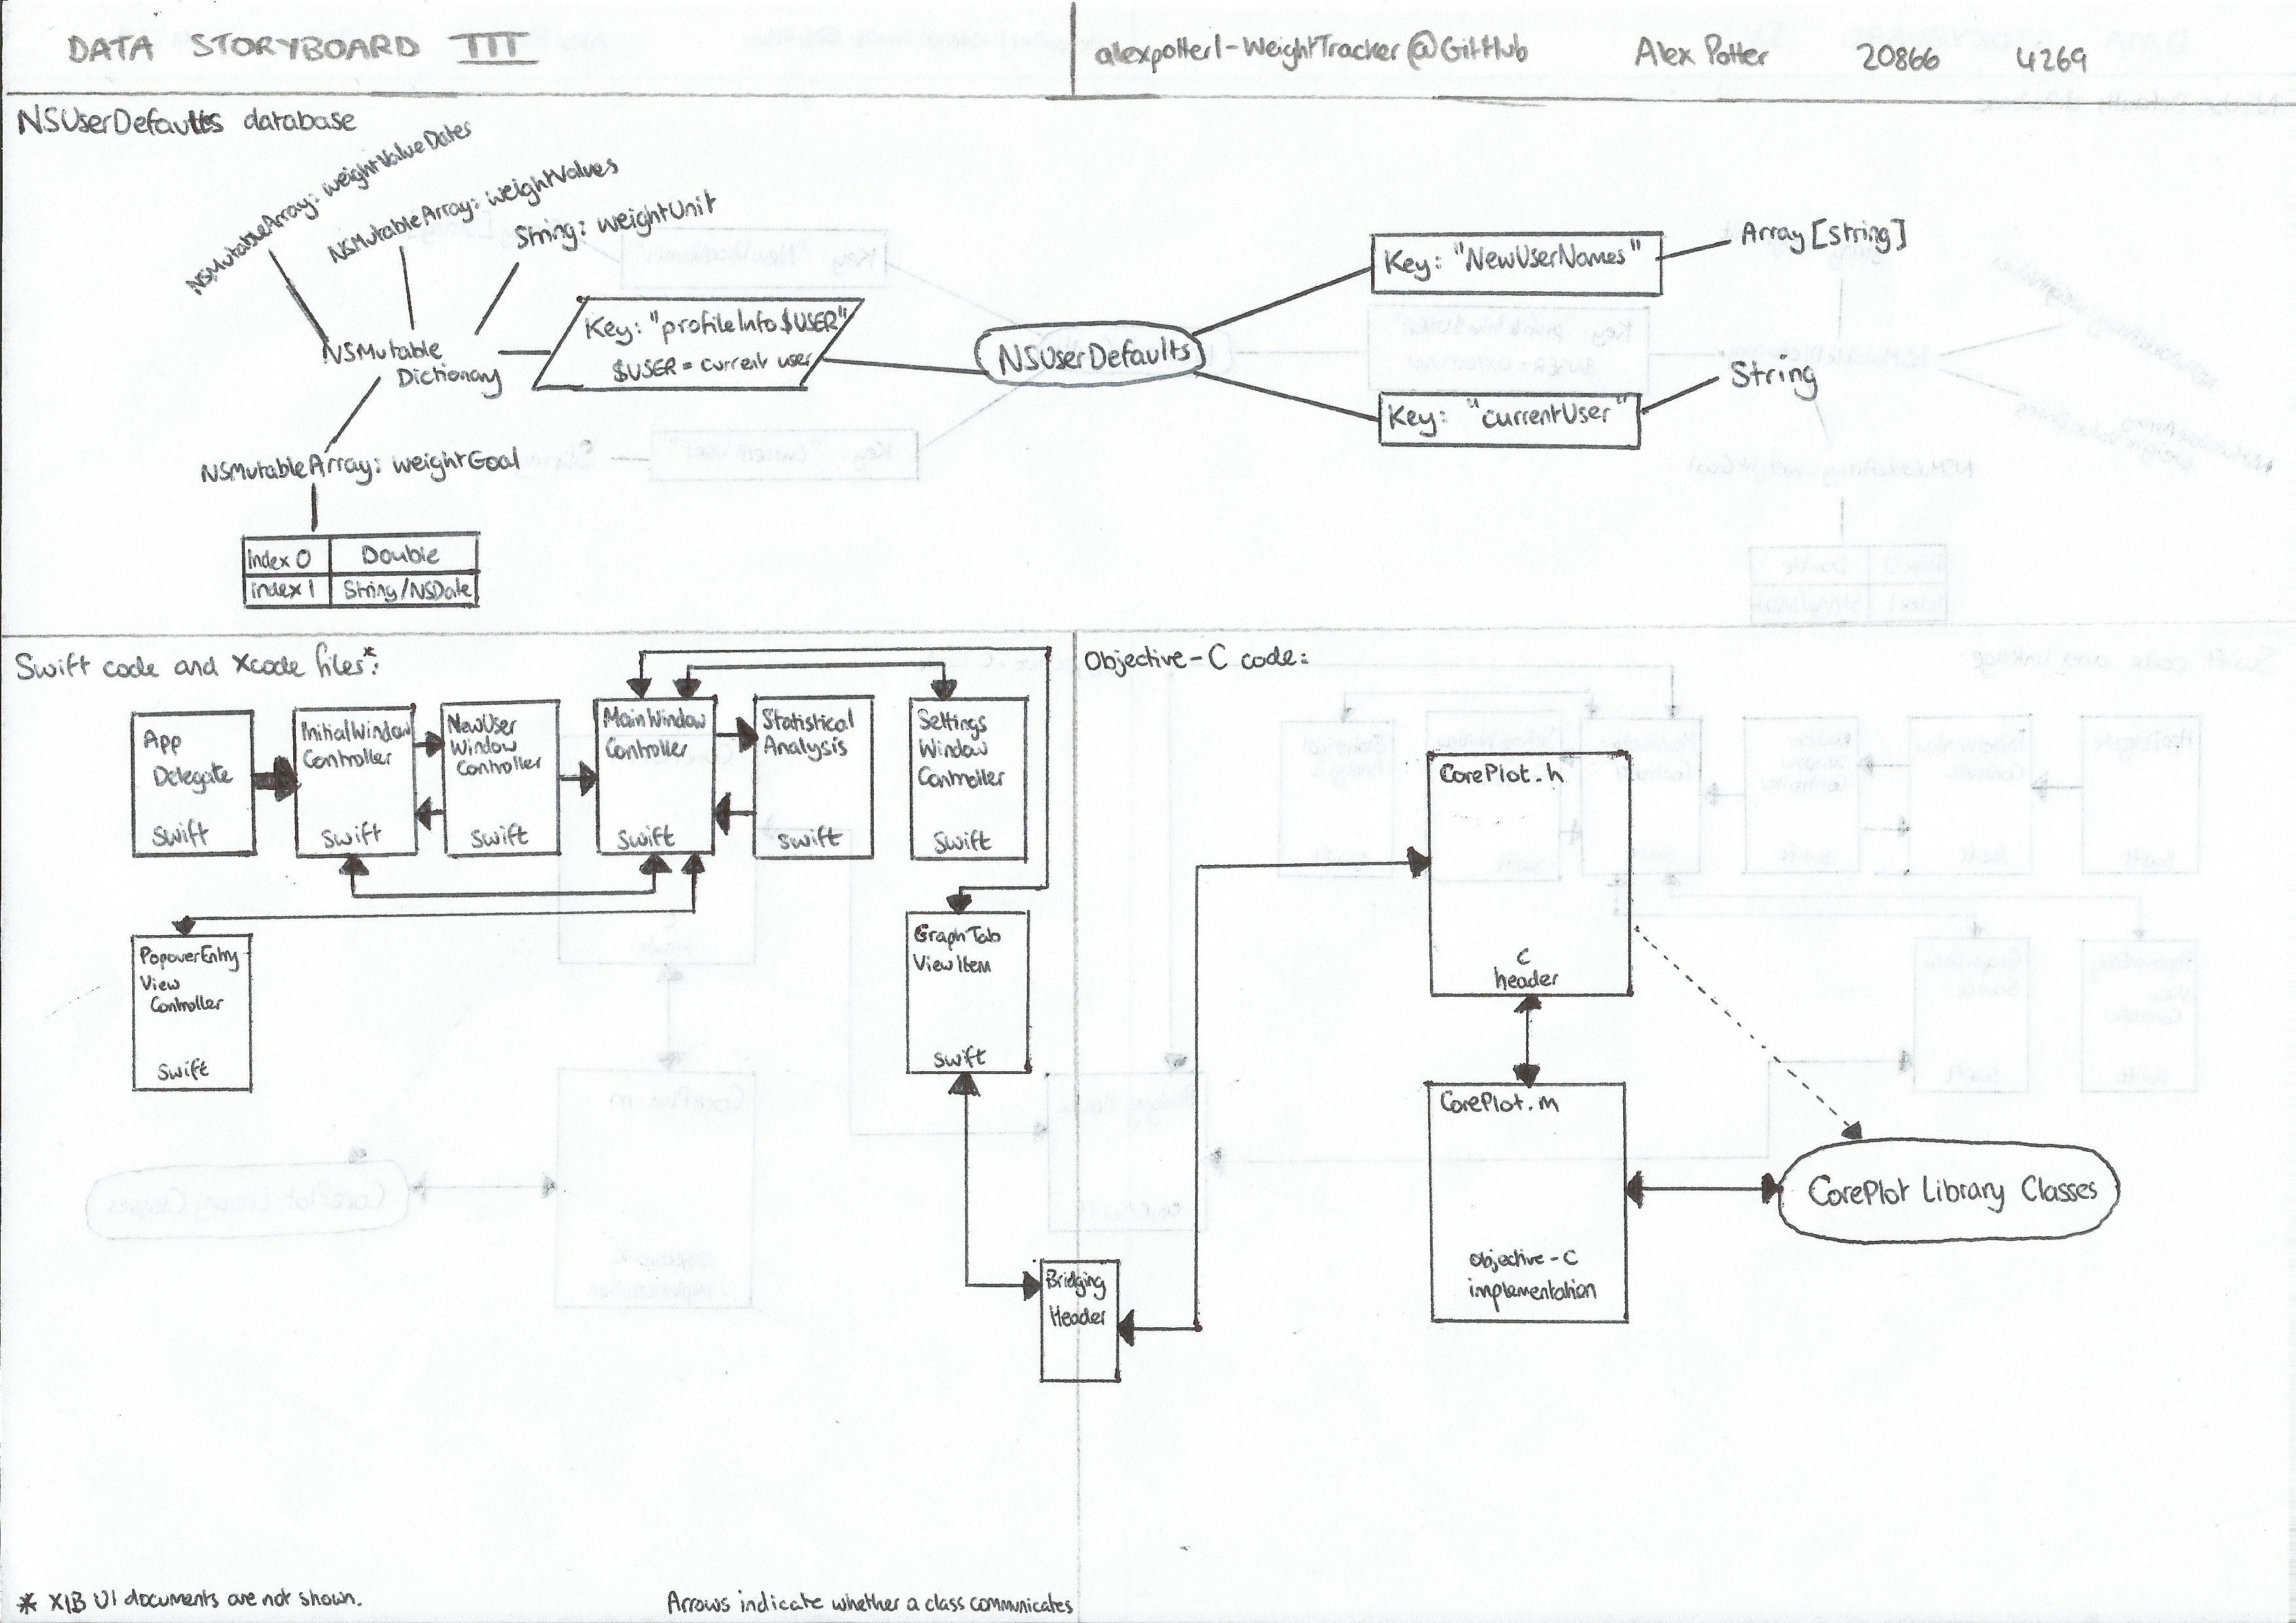 DATA STORYBOARD III
alexpotter1-WeightTracker@GitHub Alex Potter 20866 4269
NSUserDefaults database
NSMutableArray: weightValueDates
NSMutableArray: weightValues
String: weightUnit
NSMutable
Dictionary
Key: "profileInfo$USER"
$USER = current user
NSUserDefaults
Key: "NewUserNames"
Array [String]
Key: "currentUser"
String
NSMutableArray: weightGoal
Index 0 Double
Index 1 String/NSDate
Swift code and Xcode files*:
App
Delegate
Swift
InitialWindow
Controller
Swift
NewUser
Window
Controller
Swift
MainWindow
Controller
Swift
Statistical
Analysis
Swift
Settings
Window
Controller
Swift
PopoverEntry
View
Controller
Swift
GraphTab
ViewItem
Swift
Bridging
Header
Objective-C code:
CorePlot.h
C
header
CorePlot.m
objective-C
implementation
CorePlot Library Classes
* XIB UI documents are not shown.
Arrows indicate whether a class communicates